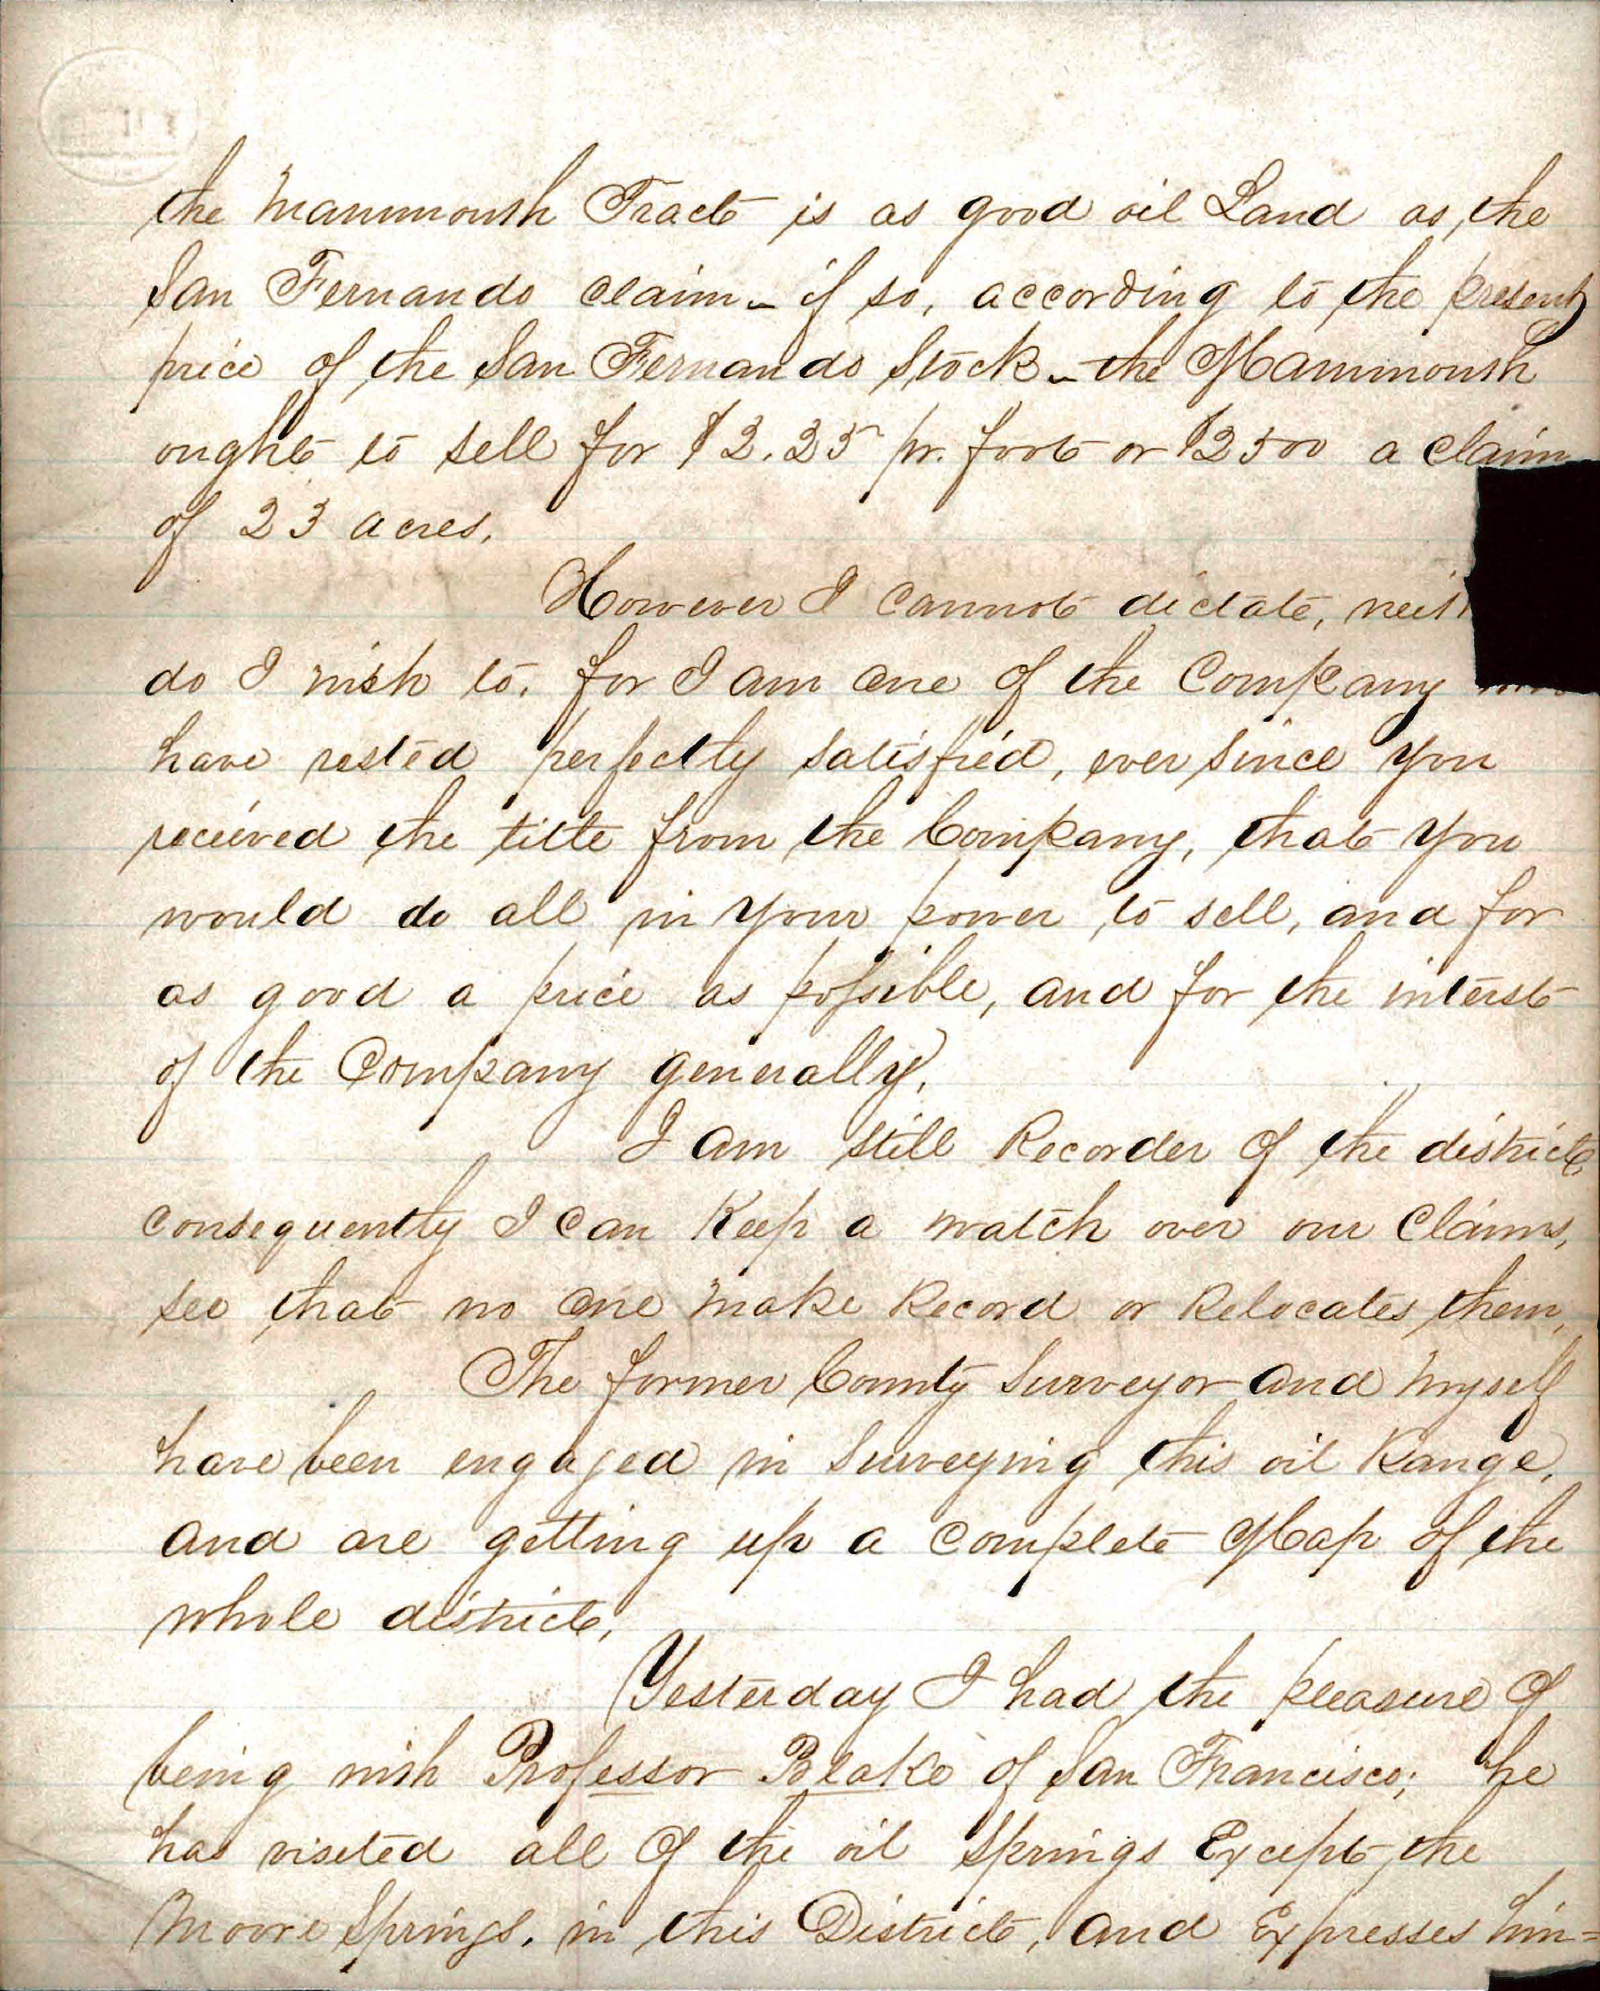 the Mammouth Tract is as good oil Land as the
San Fernando claim – if so, according to the present
price of the San Fernando Stock – the Mammouth
ought to sell for $2.25 pr. foot or $2500 a claim
of 23 acres.
However I cannot dictate, neit
do I wish to, for I am one of the Company
have rested perfectly satisfied, ever since you
received the title from the Company, that you
would do all in your power to sell, and for
as good a price as possible, and for the interst
of the Company generally.
I am still Recorder of the district,
consequently I can Keep a watch over our Claims,
see that no one make Record or Relocates them,
The former County Surveyor and myself
have been engaged in Surveying this oil Range,
and are getting up a complete Map of the
whole district,
Yesterday I had the pleasure of
being with Professor Blake of San Francisco; he
has visited all of the oil Springs Except the
Moore Springs, in this District, and Expresses him=